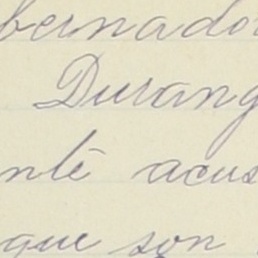 bernador
Durang
nte acus
que son